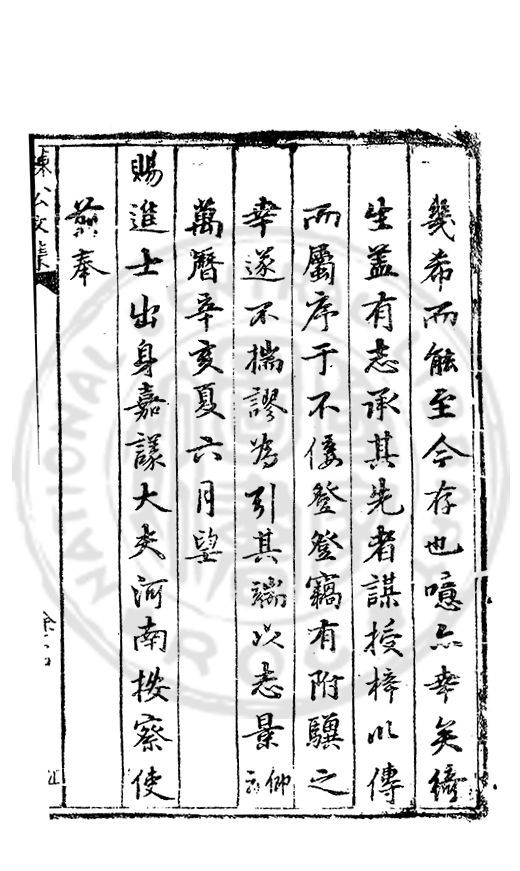 幾希而能至今存也噫亦幸矣繼
生蓋有志承其先者謀授梓以傳
而屬序于不佞登登竊有附驥之
幸遂不揣謬為引其端以志景仰云
萬曆辛亥夏六月望
賜進士出身嘉議大夫河南按察使
前奉
陳公文集
NATIONAL